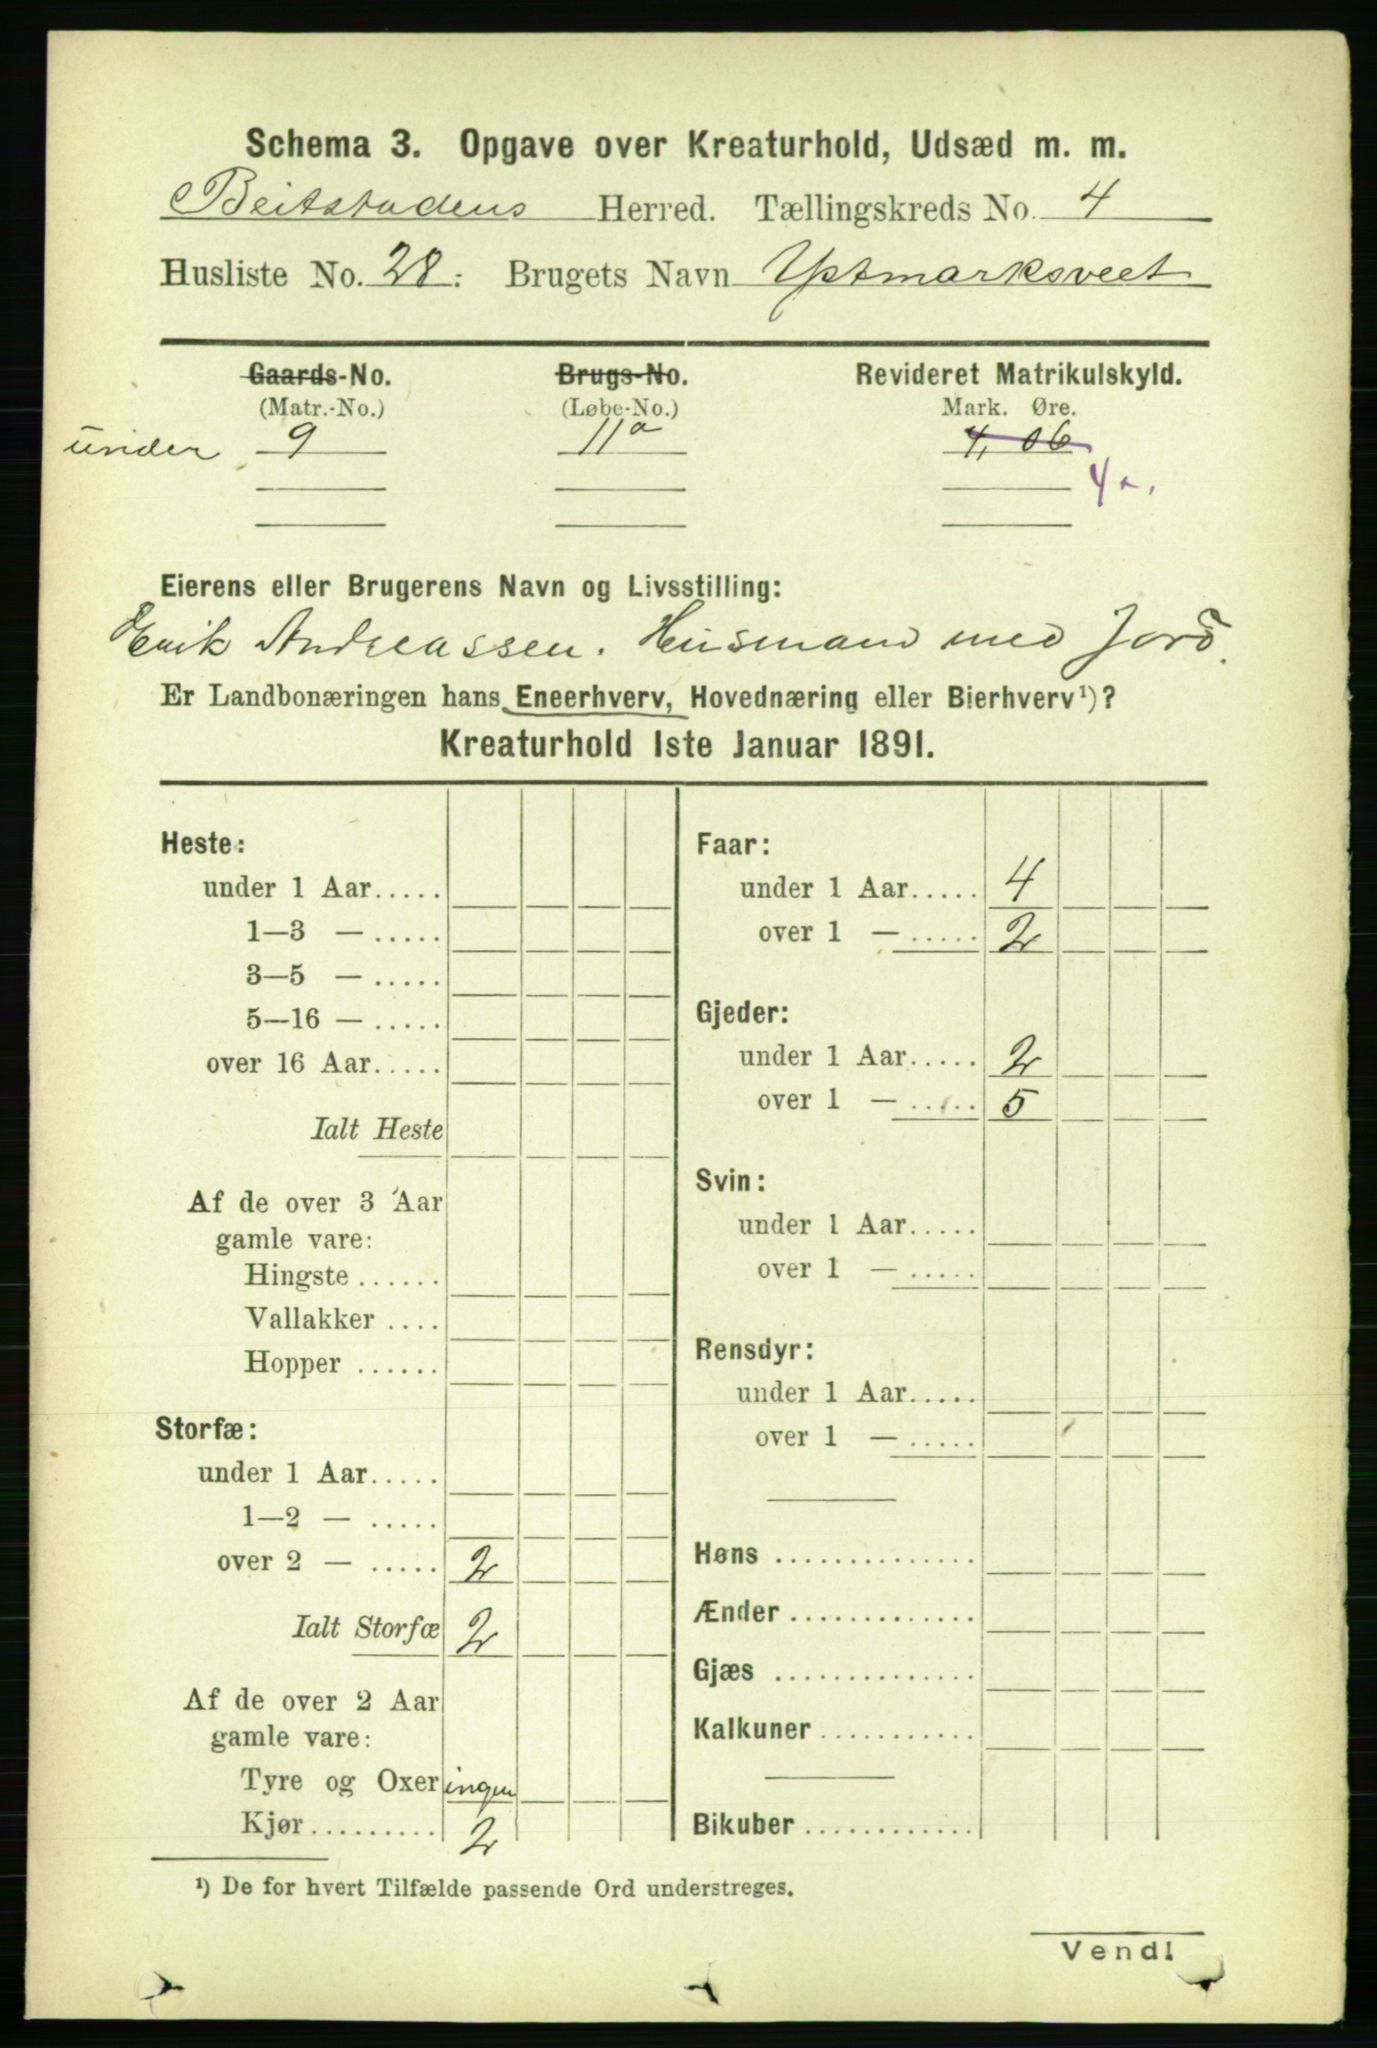 Schema 3. Opgave over Kreaturhold, Udsæd m. m.
Beitstadens Herred. Tællingskreds No. 4
Husliste No. 28: Brugets Navn
Gaards-No. Brugs-No. Revideret Matrikulskyld.
(Matr.-No.) (Løbe-No.) Mark. Øre.
under 9 11a 4, 06
4
Eierens eller Brugerens Navn og Livsstilling:
Erik Andreassen. Husmand med Jord.
Er Landbonæringen hans Eneerhverv, Hovednæring eller Bierhverv¹)?
Kreaturhold 1ste Januar 1891.
Heste:
under 1 Aar.....
1—3 — .....
3—5 — .....
5—16 — .....
over 16 Aar.....
Ialt Heste
Af de over 3 Aar
gamle vare:
Hingste ......
Vallakker ....
Hopper ......
Storfæ:
under 1 Aar.....
1—2 — .....
over 2 — ..... 2
Ialt Storfæ 2
Af de over 2 Aar
gamle vare:
Tyre og Oxer ingen
Kjør......... 2
Faar:
under 1 Aar..... 4
over 1 — ..... 2
Gjeder:
under 1 Aar..... 2
over 1 — ..... 5
Svin:
under 1 Aar.....
over 1 — .....
Rensdyr:
under 1 Aar.....
over 1 — .....
Høns ..............
Ænder .............
Gjæs ..............
Kalkuner ...........
Bikuber ............
¹) De for hvert Tilfælde passende Ord understreges.
Vend!